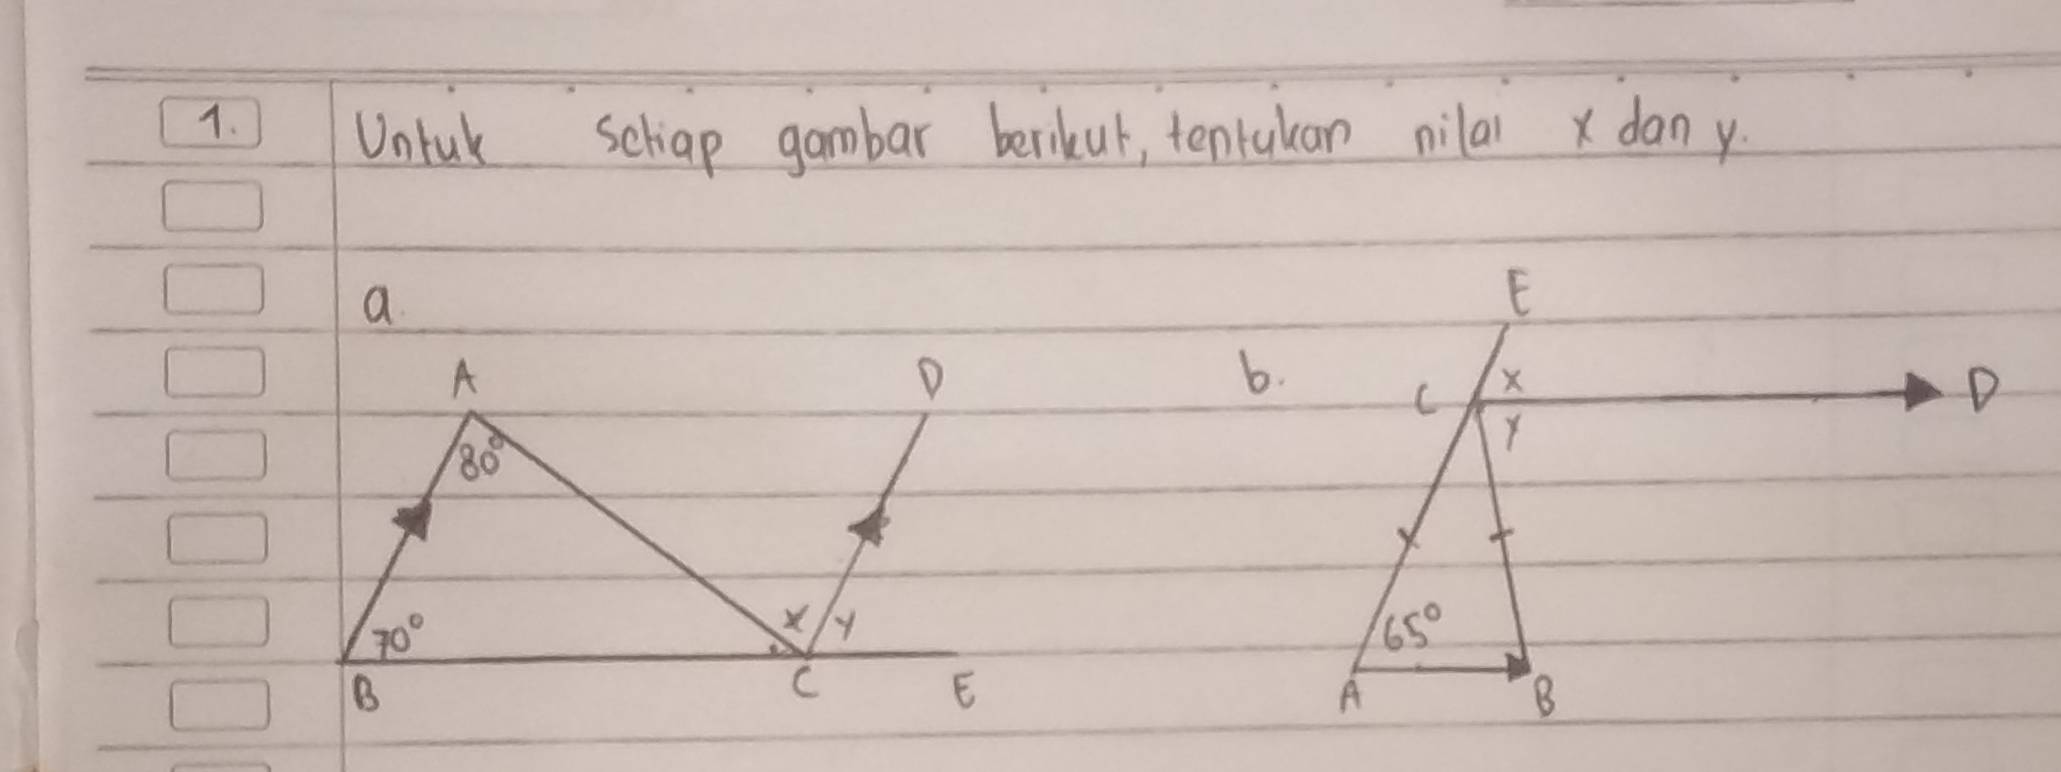 1. Untuk setiap gambar berikut, tentukan nilai x dan y.
a.
b.
A
D
80°
x y
70°
B
C
E
E
C
x
D
y
65°
A
B